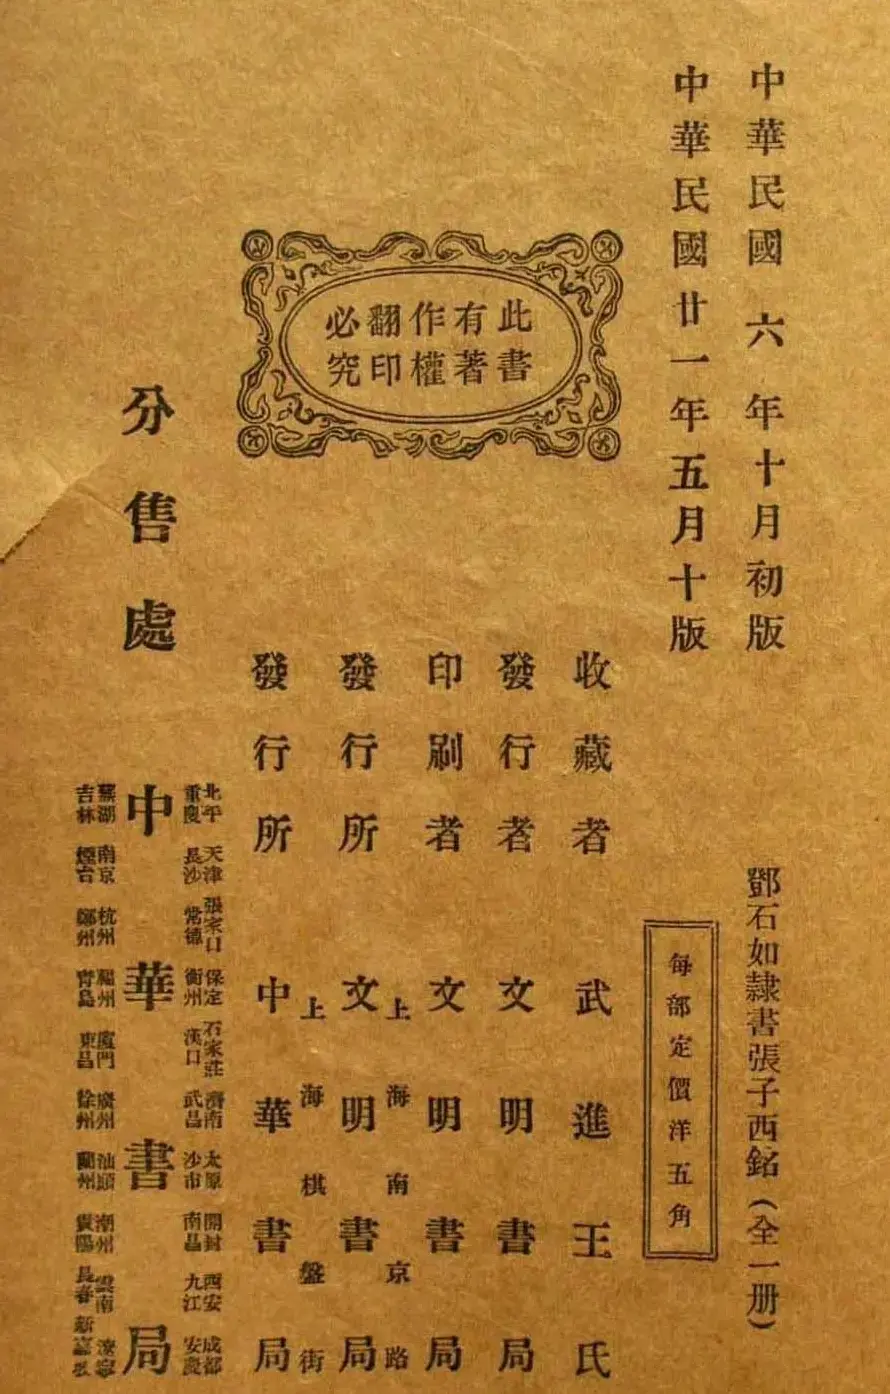 中華民國六年十月初版
鄧石如隸書張子西銘(全一册)
中華民國廿一年五月十版
每部定價洋五角
此書
有著
作權
翻印
必究
收藏者 武進王氏
發行者 文明書局
印刷者 文明書局
上海南京路
發行所 文明書局
上海棋盤街
發行所 中華書局
北平 天津 張家口 保定 石家莊 濟南 太原 開封 西安 成都
重慶 長沙 常德 衡州 漢口 武昌 沙市 南昌 九江 安慶
分售處 中華書局
蕪湖 南京 杭州 福州 廈門 廣州 汕頭 潮州 雲南 遼寧
吉林 煙台 鄭州 青島 東昌 徐州 蘭州 貴陽 長春 新嘉坡